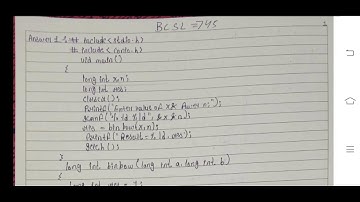 BCSL-045
1
Answer 1 :- # include <stdio.h>
# include <conio.h>
void main()
{
long int x,n;
long int res;
clrscr();
printf("Enter value of x & n");
scanf("%ld %ld", &x, &n);
res = binpow(x,n);
printf("Result = %ld", res);
getch();
}
long int binpow(long int a, long int b)
{
long int res = 1;